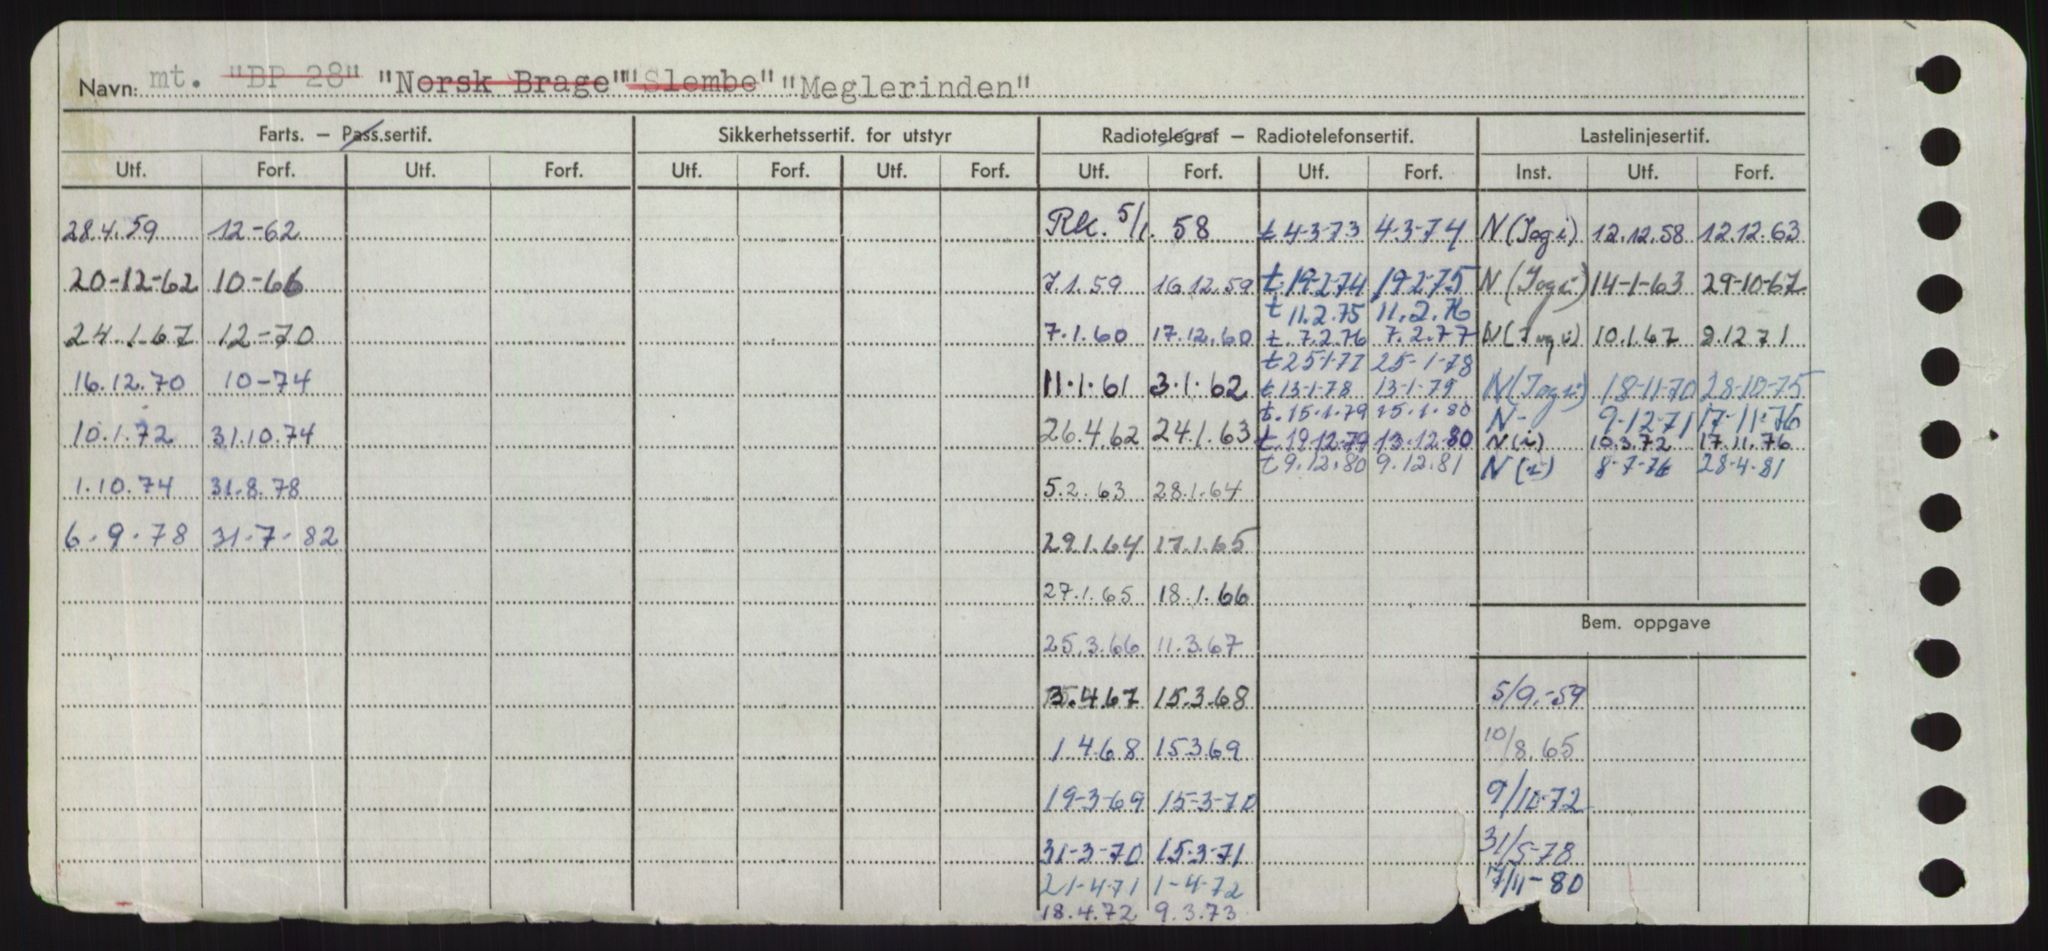 Navn: mt. "BP 28" "Norsk Brage" "Slembe" "Meglerinden"
Farts. – Pass.sertif. Sikkerhetssertif. for utstyr Radiotelegraf – Radiotelefonsertif. Lastelinjesertif.
Utf. Forf. Utf. Forf. Utf. Forf. Utf. Forf. Utf. Forf. Utf. Forf. Inst. Utf. Forf.
28.4.59 12-62 Rk. 5/1. 58 t 4-3-73 4-3-74 N (Jogi) 12.12.58 12.12.63
20-12-62 10-66 7.1.59 16.12.59 t 19-2-74 19-2-75 N (Jogi) 14-1-63 29-10-67
t 11.2.75 11.2.76
24.1.67 12-70 7.1.60 17.12.60 t. 7.2.76 7.2.77 N 10.1.67 9.12 71
t 25-1-77 25-1-78
16.12.70 10-74 11.1.61 3.1.62 t 13-1-78 13-1-79 N (Jogi) 18-11-70 28-10-75
t. 15.1.79 15.1.80 N- 9-12-71 17-11-76
10.1.72 31.10.74 26.4.62 24.1.63 t. 19.12.79 13.12.80 N (i) 10.3.72 17.11.76
t 9.12.80 9.12.81 N (i) 8-7-76 28-4-81
1.10.74 31.8.78 5.2.63 28.1.64
6.9.78 31.7.82 29.1.64 17.1.65
27.1.65 18.1.66
Bem. oppgave
25.3.66 11.3.67
3.4.67 15.3.68 5/9.-59
1.4.68 15.3.69 10/8.65
19-3-69 15-3-70 9/10-72
31-3-70 15-3-71 31/5-78
21-4-71 1-4-72 17/11-80
18.4.72 9.3.73